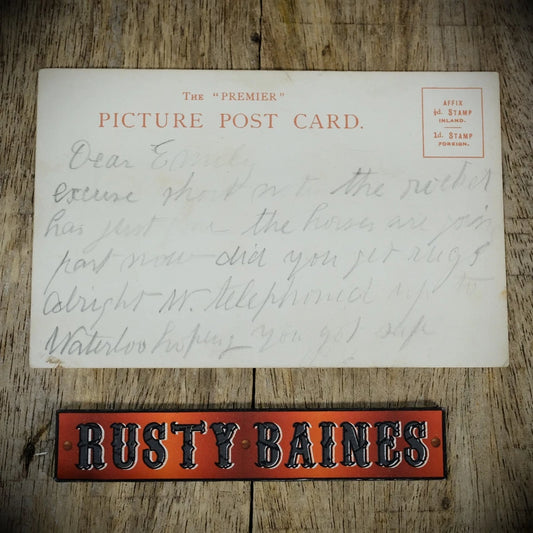 THE "PREMIER"
PICTURE POST CARD.
AFFIX
½d. STAMP
INLAND.
1d. STAMP
FOREIGN.
Dear Emily
excuse short note the rocket
has just the horses are going
past now did you get rugs
alright W. telephoned up to
Waterloo hoping you got safe
RUSTY BAINES